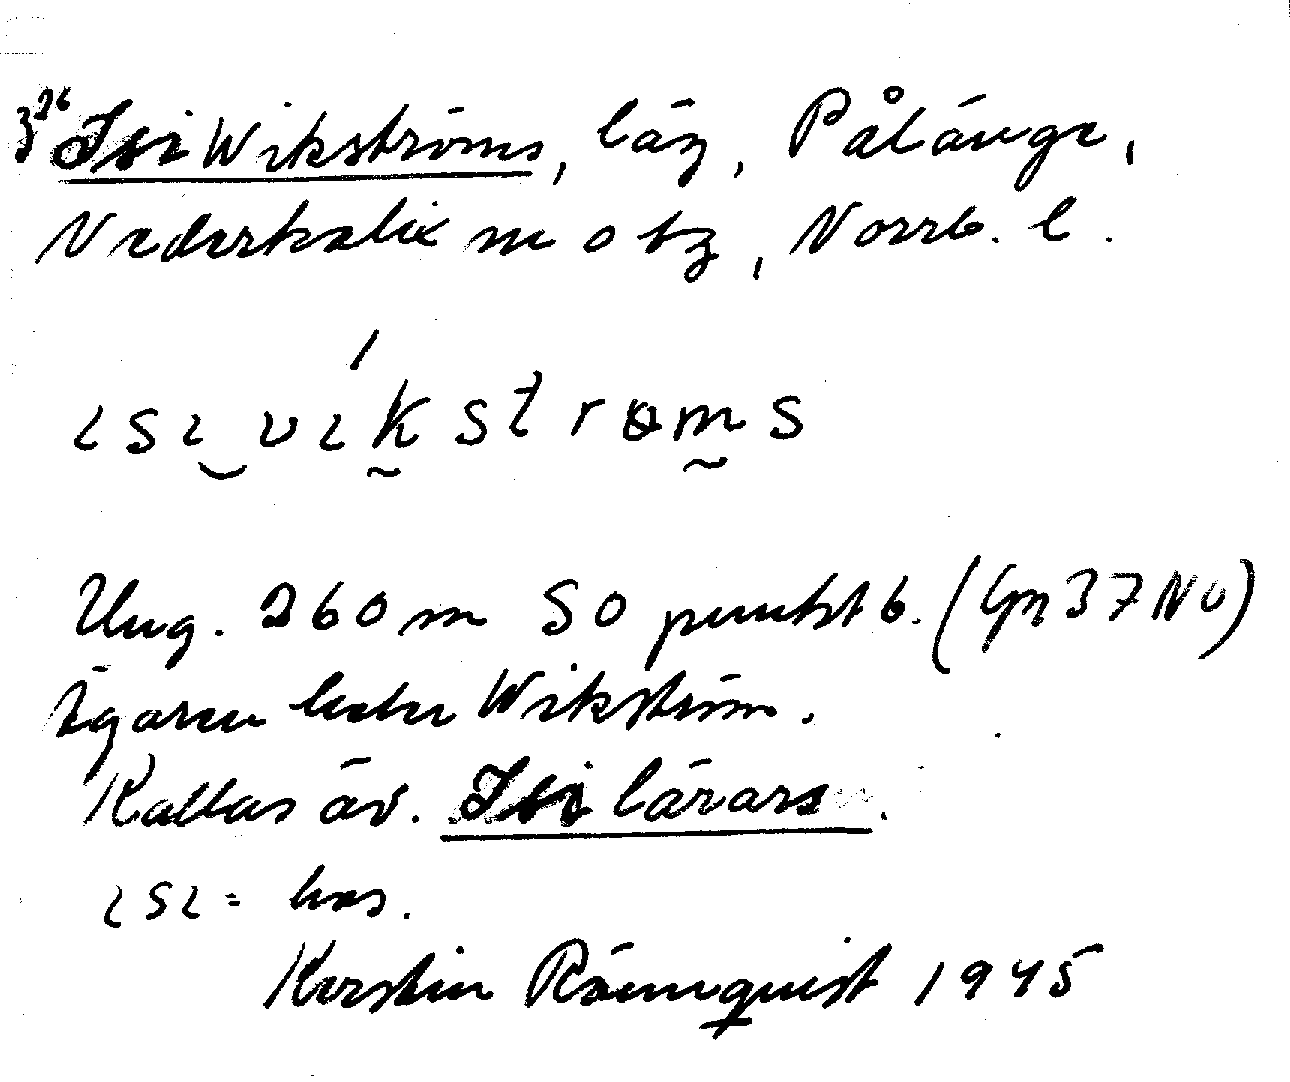 3²⁶ Isi Wikströms, läg, Pålänge,
Nederkalix m o tg, Norrb. l.
ɩsɩ‿vɩ́k̰strɵm̰s
Ung. 260 m SO punkt 6. (Gn 37 NV)
Ägaren heter Wikström.
Kallas äv. Isi lärars.
ɩsɩ = hos.
Kerstin Rönnquist 1945